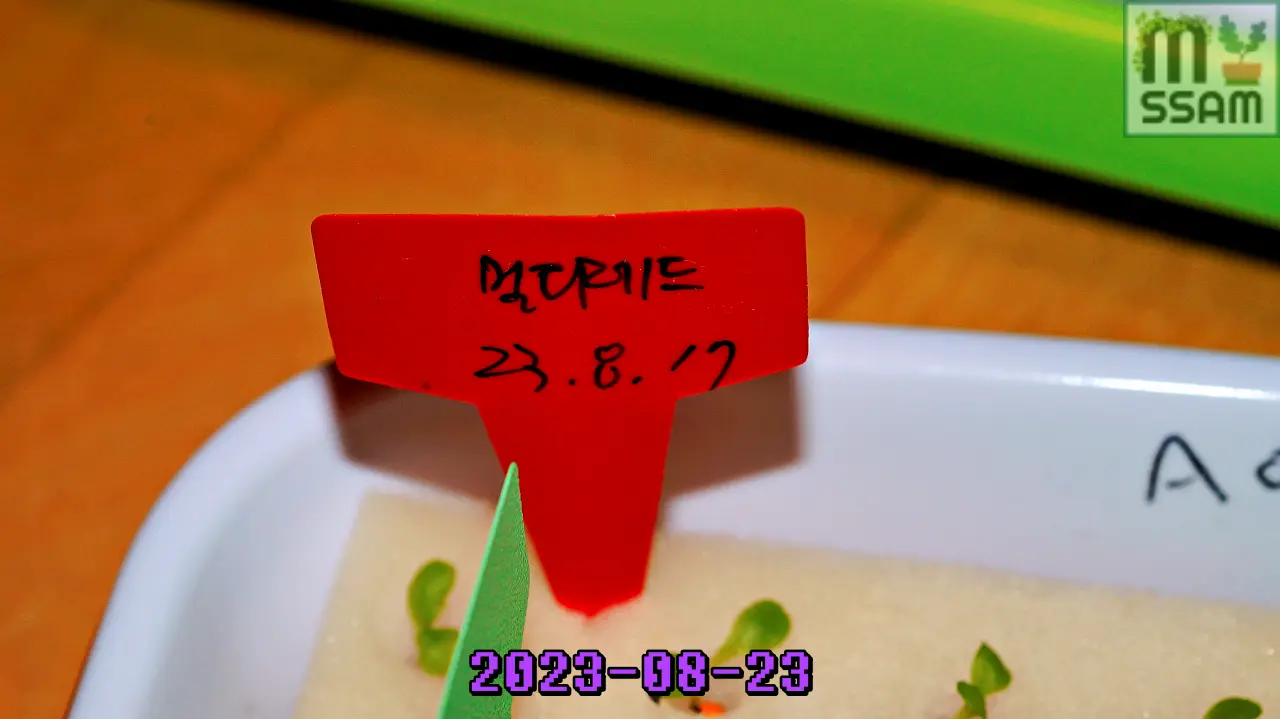 M
SSAM
멀디레드
23.8.17
2023-08-23